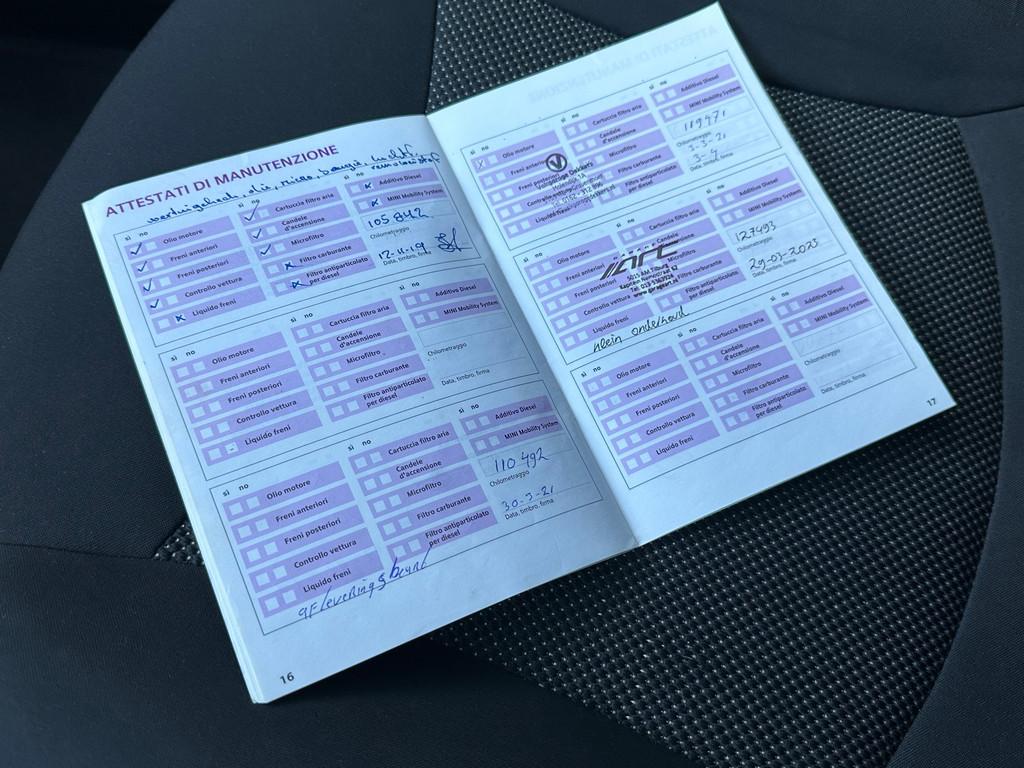 ATTESTATI DI MANUTENZIONE
sì no
Olio motore
Freni anteriori
Freni posteriori
Controllo vettura
Liquido freni
sì no
Cartuccia filtro aria
Candele d'accensione
Microfiltro
Filtro carburante
Filtro antiparticolato per diesel
sì no
Additivo Diesel
MINI Mobility System
105 842
Chilometraggio
12-11-19
Data, timbro, firma
sì no
Olio motore
Freni anteriori
Freni posteriori
Controllo vettura
Liquido freni
sì no
Cartuccia filtro aria
Candele d'accensione
Microfiltro
Filtro carburante
Filtro antiparticolato per diesel
sì no
Additivo Diesel
MINI Mobility System
Chilometraggio
Data, timbro, firma
sì no
Olio motore
Freni anteriori
Freni posteriori
Controllo vettura
Liquido freni
sì no
Cartuccia filtro aria
Candele d'accensione
Microfiltro
Filtro carburante
Filtro antiparticolato per diesel
sì no
Additivo Diesel
MINI Mobility System
110 492
Chilometraggio
30-3-21
Data, timbro, firma
afleveringsbeurt
16
sì no
Olio motore
Freni anteriori
Freni posteriori
Controllo vettura
Liquido freni
sì no
Cartuccia filtro aria
Candele d'accensione
Microfiltro
Filtro carburante
Filtro antiparticolato per diesel
sì no
Additivo Diesel
MINI Mobility System
Chilometraggio
Data, timbro, firma
sì no
Olio motore
Freni anteriori
Freni posteriori
Controllo vettura
Liquido freni
sì no
Cartuccia filtro aria
Microfiltro
Filtro carburante
Filtro antiparticolato per diesel
sì no
Additivo Diesel
MINI Mobility System
127493
Chilometraggio
29-03-2023
Data, timbro, firma
5015 AM Tilburg
klein onderhoud
sì no
Olio motore
Freni anteriori
Freni posteriori
Controllo vettura
Liquido freni
sì no
Cartuccia filtro aria
Candele d'accensione
Microfiltro
Filtro carburante
Filtro antiparticolato per diesel
sì no
Additivo Diesel
MINI Mobility System
Chilometraggio
Data, timbro, firma
17